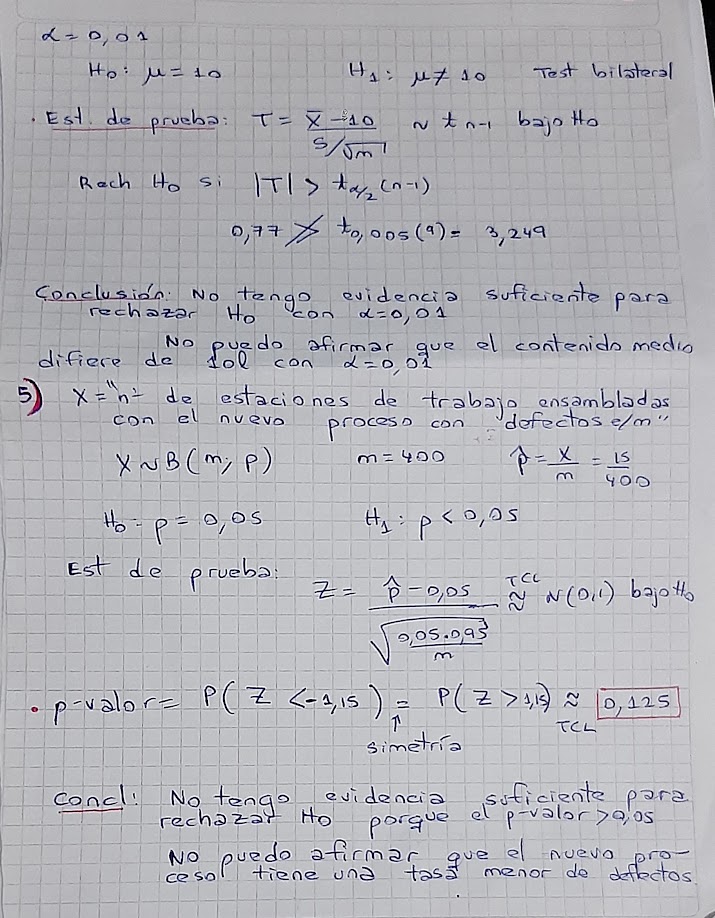 α = 0,01
H₀: μ = 10 H₁: μ ≠ 10 Test bilateral
· Est. de prueba: T = (x̄ - 10) / (S/√m) ~ t n-1 bajo H₀
Rech H₀ si |T| > t α/2 (n-1)
0,77 ≯ t 0,005 (9) = 3,249
Conclusión: No tengo evidencia suficiente para
rechazar H₀ con α=0,01
No puedo afirmar que el contenido medio
difiere de 10l con α=0,01
5) X = "nº de estaciones de trabajo ensambladas
con el nuevo proceso con defectos e/m"
X ~ B(m; p) m = 400 p̂ = X/m = 15/400
H₀ = p = 0,05 H₁: p < 0,05
Est de prueba:
Z = (p̂ - 0,05) / √(0,05 · 0,95 / m) TCL ≈ N(0,1) bajo H₀
· p-valor = P( Z < -1,15 ) = P( Z > 1,15) ≈ 0,125
↑ TCL
simetría
Concl: No tengo evidencia suficiente para
rechazar H₀ porque el p-valor > 0,05
No puedo afirmar que el nuevo pro-
ceso tiene una tasa menor de defectos.